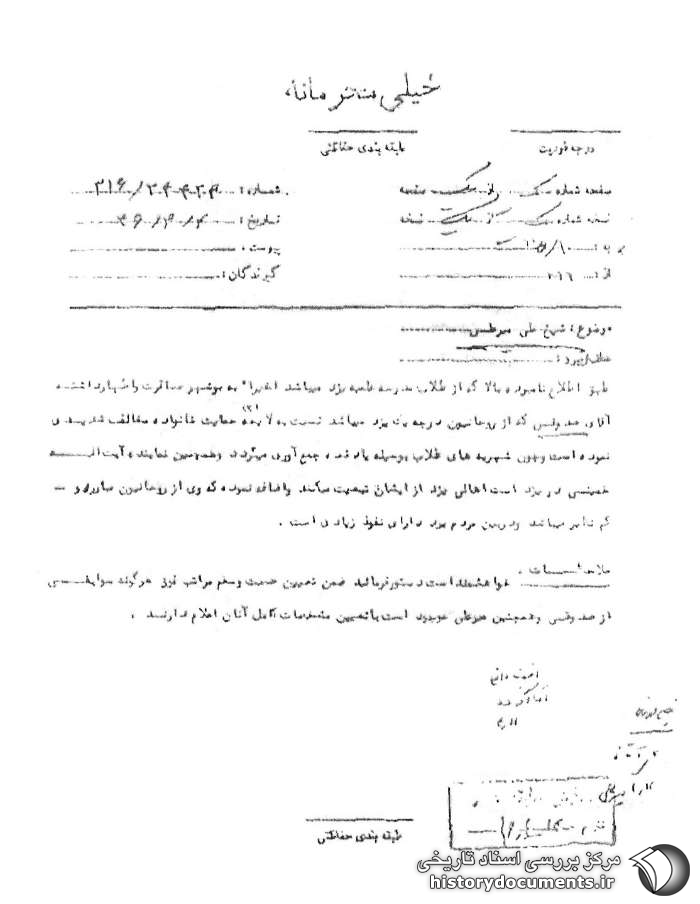 خیلی محرمانه
درجه فوریت
طبقه بندی حفاظتی
صفحه شماره یک از یک صفحه
شماره : ۳۱۶/۲۴۴۲۴
نسخه شماره یک از نسخه
تاریخ : ۴۶/۴/۴
به :
پیوست :
از : ۳۱۶
گیرندگان :
موضوع : شیخ علی
عطف/پیرو :
طبق اطلاع نامبرده بالا که از طلاب مدرسه علمیه یزد میباشد اخیرا" به بوشهر مسافرت و اظهار داشته
آقای صدوقی که از روحانیون درجه یک یزد میباشد نسبت به لایحه حمایت خانواده مخالفت شدیدی
نموده است و چون شهریه های طلاب بوسیله یاد شده جمع آوری میگردد و همچنین نماینده آیت اله
خمینی در یزد است اهالی یزد از ایشان تبعیت میکنند و اضافه نموده که وی از روحانیون مبارز و
کم نظیر میباشد و در بین مردم یزد دارای نفوذ زیادی است .
ملاحظات :
خواهشمند است دستور فرمائید ضمن تعیین صحت و سقم مراتب فوق هرگونه سوابقی
از صدوقی و همچنین موجود است با تعیین مشخصات کامل آنان اعلام دارند .
طبقه بندی حفاظتی
مرکز بررسی اسناد تاریخی
historydocuments.ir